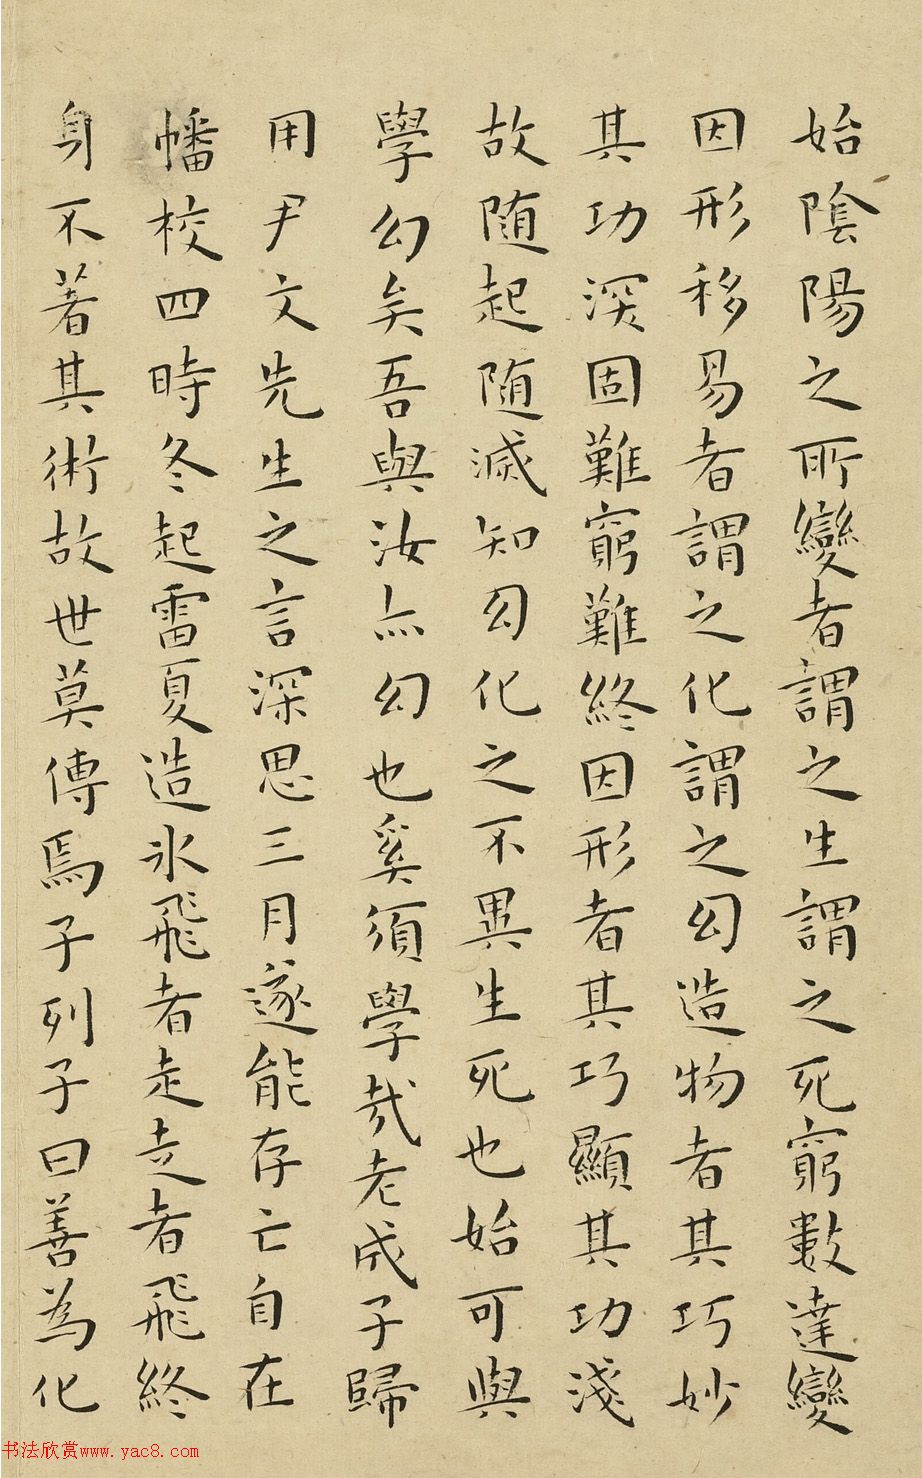 始陰陽之所變者謂之生謂之死窮數達變
因形移易者謂之化謂之幻造物者其巧妙
其功深固難窮難終因形者其巧顯其功淺
故随起随滅知幻化之不異生死也始可與
學幻矣吾與汝亦幻也奚須學哉老成子歸
用尹文先生之言深思三月遂能存亡自在
幡校四時冬起雷夏造冰飛者走走者飛終
身不著其術故世莫傳焉子列子曰善為化
书法欣赏www.yac8.com